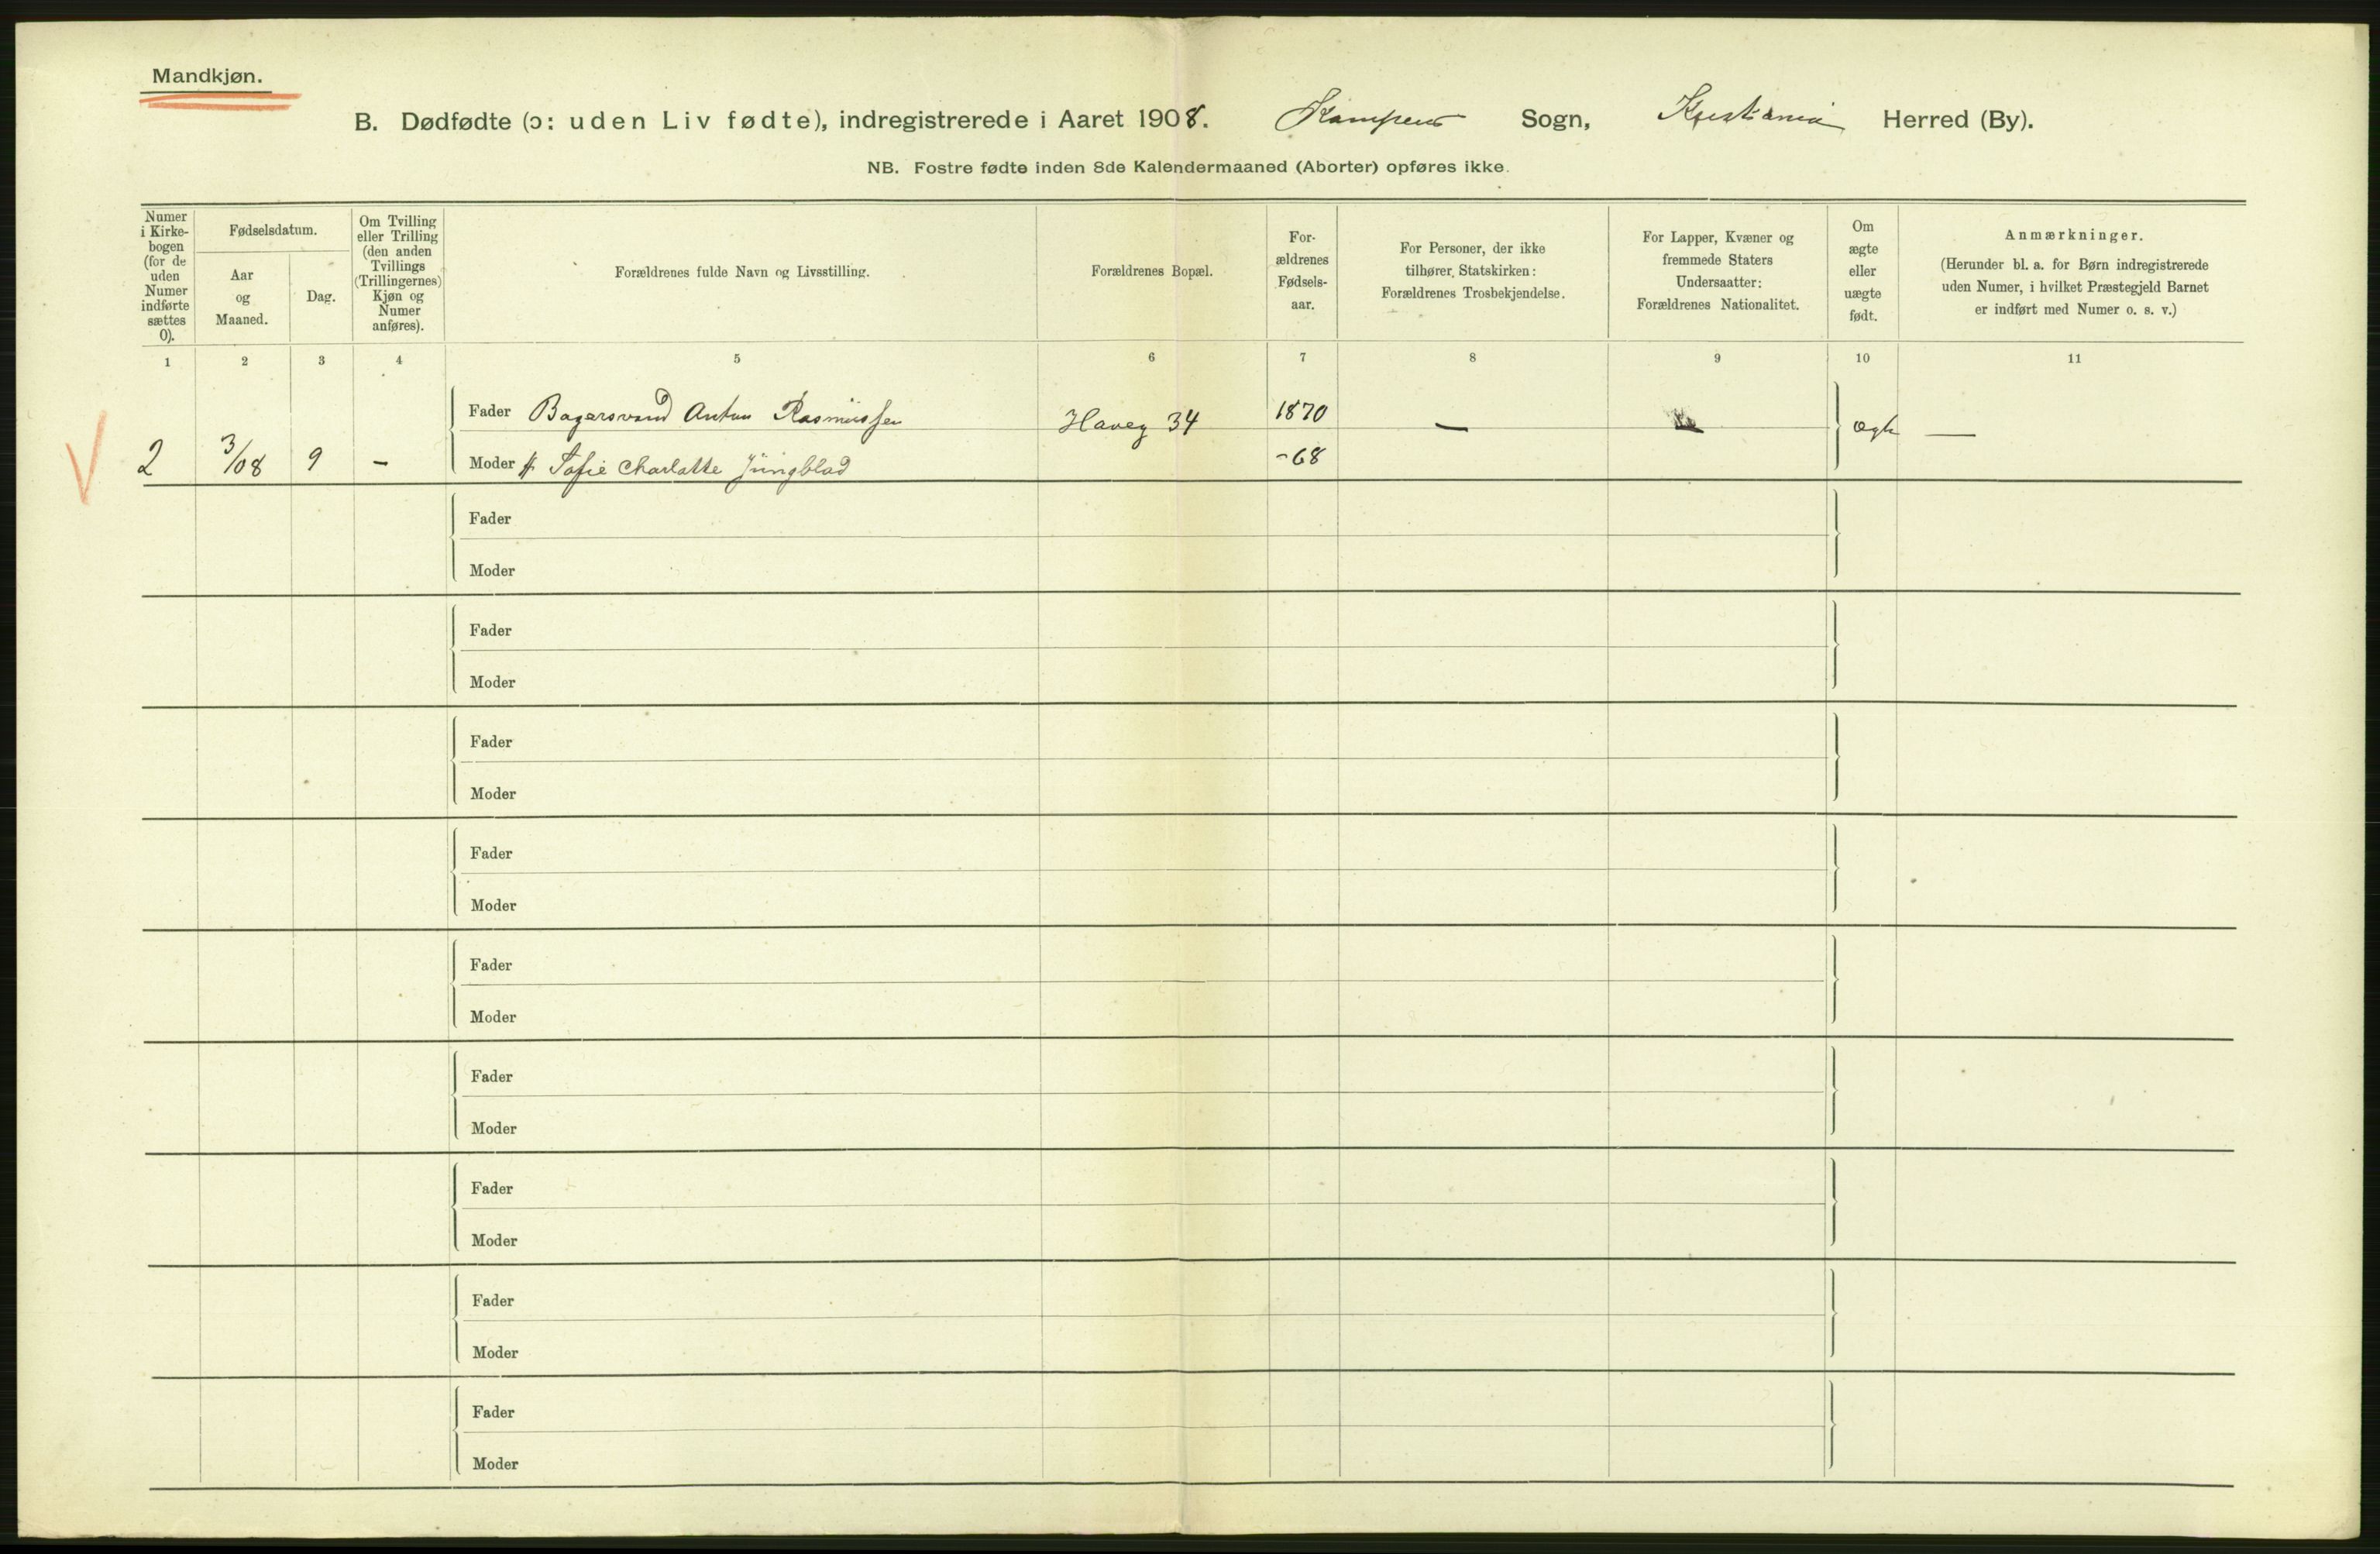 Mandkjøn.
B. Dødfødte (ɔ: uden Liv fødte), indregistrerede i Aaret 1908. Kampens Sogn, Kristiania Herred (By).
NB. Fostre fødte inden 8de Kalendermaaned (Aborter) opføres ikke.
Numer
i Kirke-
bogen
(for de
uden
Numer
indførte
sættes
0).
Fødselsdatum.
Aar
og
Maaned.
Dag.
Om Tvilling
eller Trilling
(den anden
Tvillings
(Trillingernes)
Kjøn og
Numer
anføres).
Forældrenes fulde Navn og Livsstilling.
Forældrenes Bopæl.
For-
ældrenes
Fødsels-
aar.
For Personer, der ikke
tilhører Statskirken:
Forældrenes Trosbekjendelse.
For Lapper, Kvæner og
fremmede Staters
Undersaatter:
Forældrenes Nationalitet.
Om
ægte
eller
uægte
født.
Anmærkninger.
(Herunder bl. a. for Børn indregistrerede
uden Numer, i hvilket Præstegjeld Barnet
er indført med Numer o. s. v.)
1 2 3 4 5 6 7 8 9 10 11
Fader Bagersvend Anton Rasmussen Haveg 34 1870 — ægte —
2 3/08 9 – Moder Sofie Charlotte Jüngblad -68
Fader
Moder
Fader
Moder
Fader
Moder
Fader
Moder
Fader
Moder
Fader
Moder
Fader
Moder
Fader
Moder
Fader
Moder